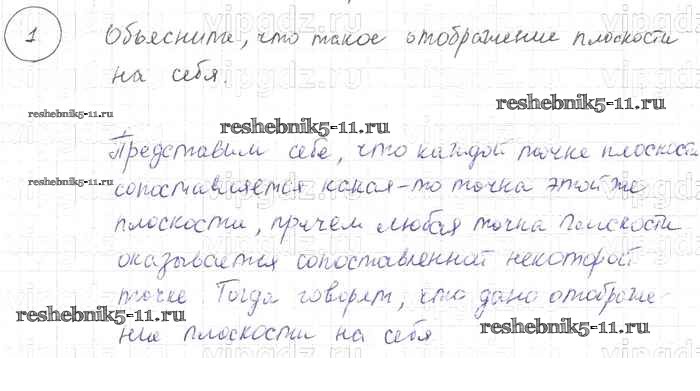 1 Объясните, что такое отображение плоскости
на себя.
reshebnik5-11.ru
reshebnik5-11.ru
reshebnik5-11.ru
Представим себе, что каждой точке плоскости
reshebnik5-11.ru
сопоставляется какая-то точка этой же
плоскости, причём любая точка плоскости
оказывается сопоставленной некоторой
точке. Тогда говорят, что дано отображе-
reshebnik5-11.ru
ние плоскости на себя
reshebnik5-11.ru